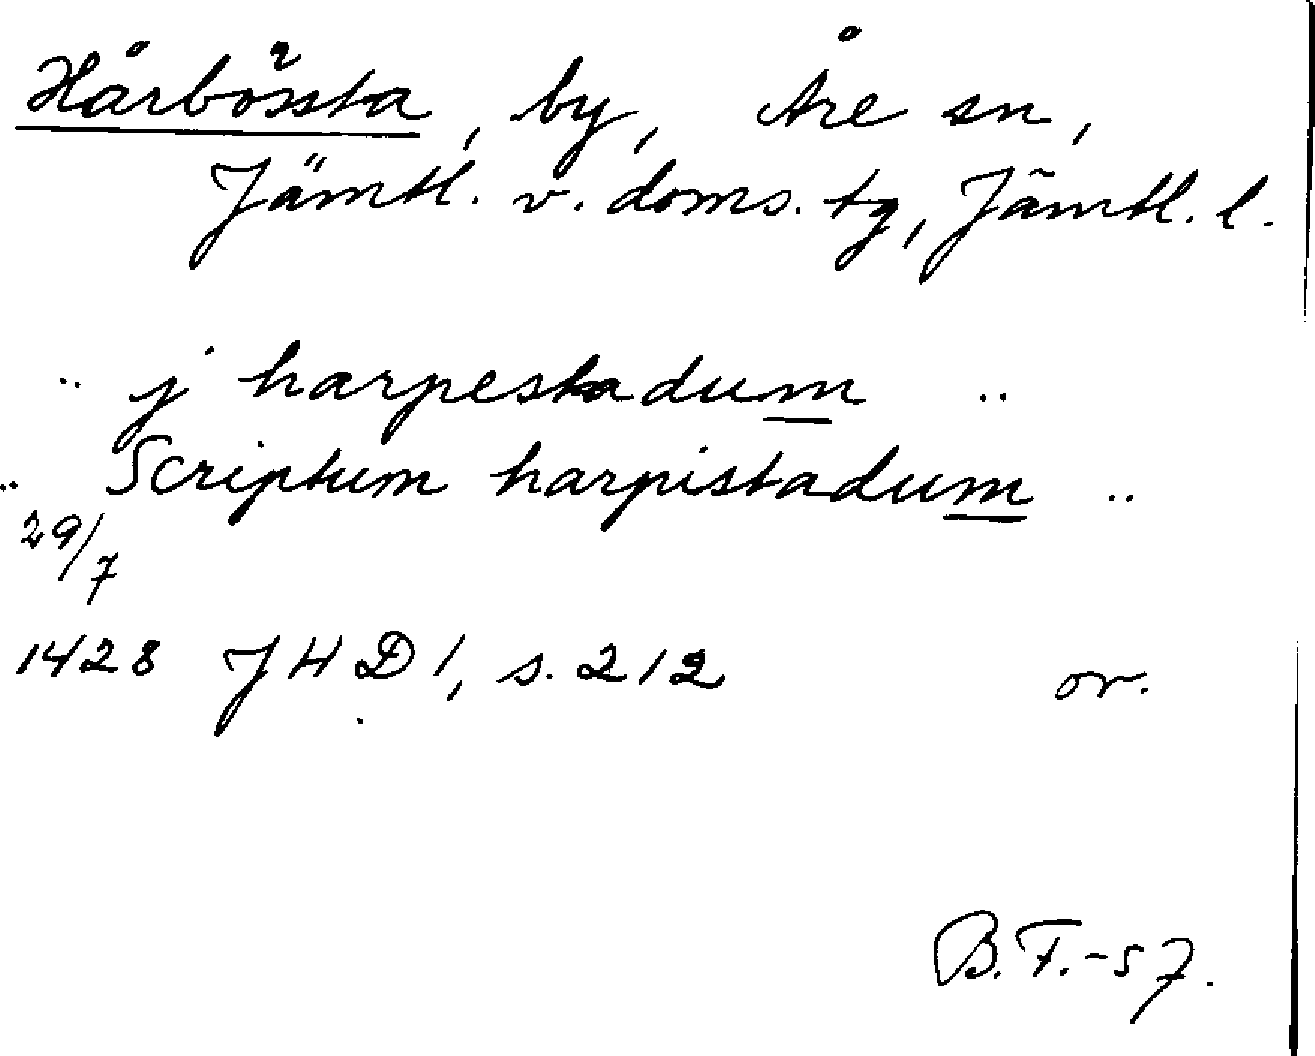 Hårbösta, by, Åre sn,
Jämtl. v. doms. tg, Jämtl. l.
.. j harpestadum ..
.. Scriptum harpistadum ..
29/7
1428 JHD 1, s. 212 or.
B.F.-57.